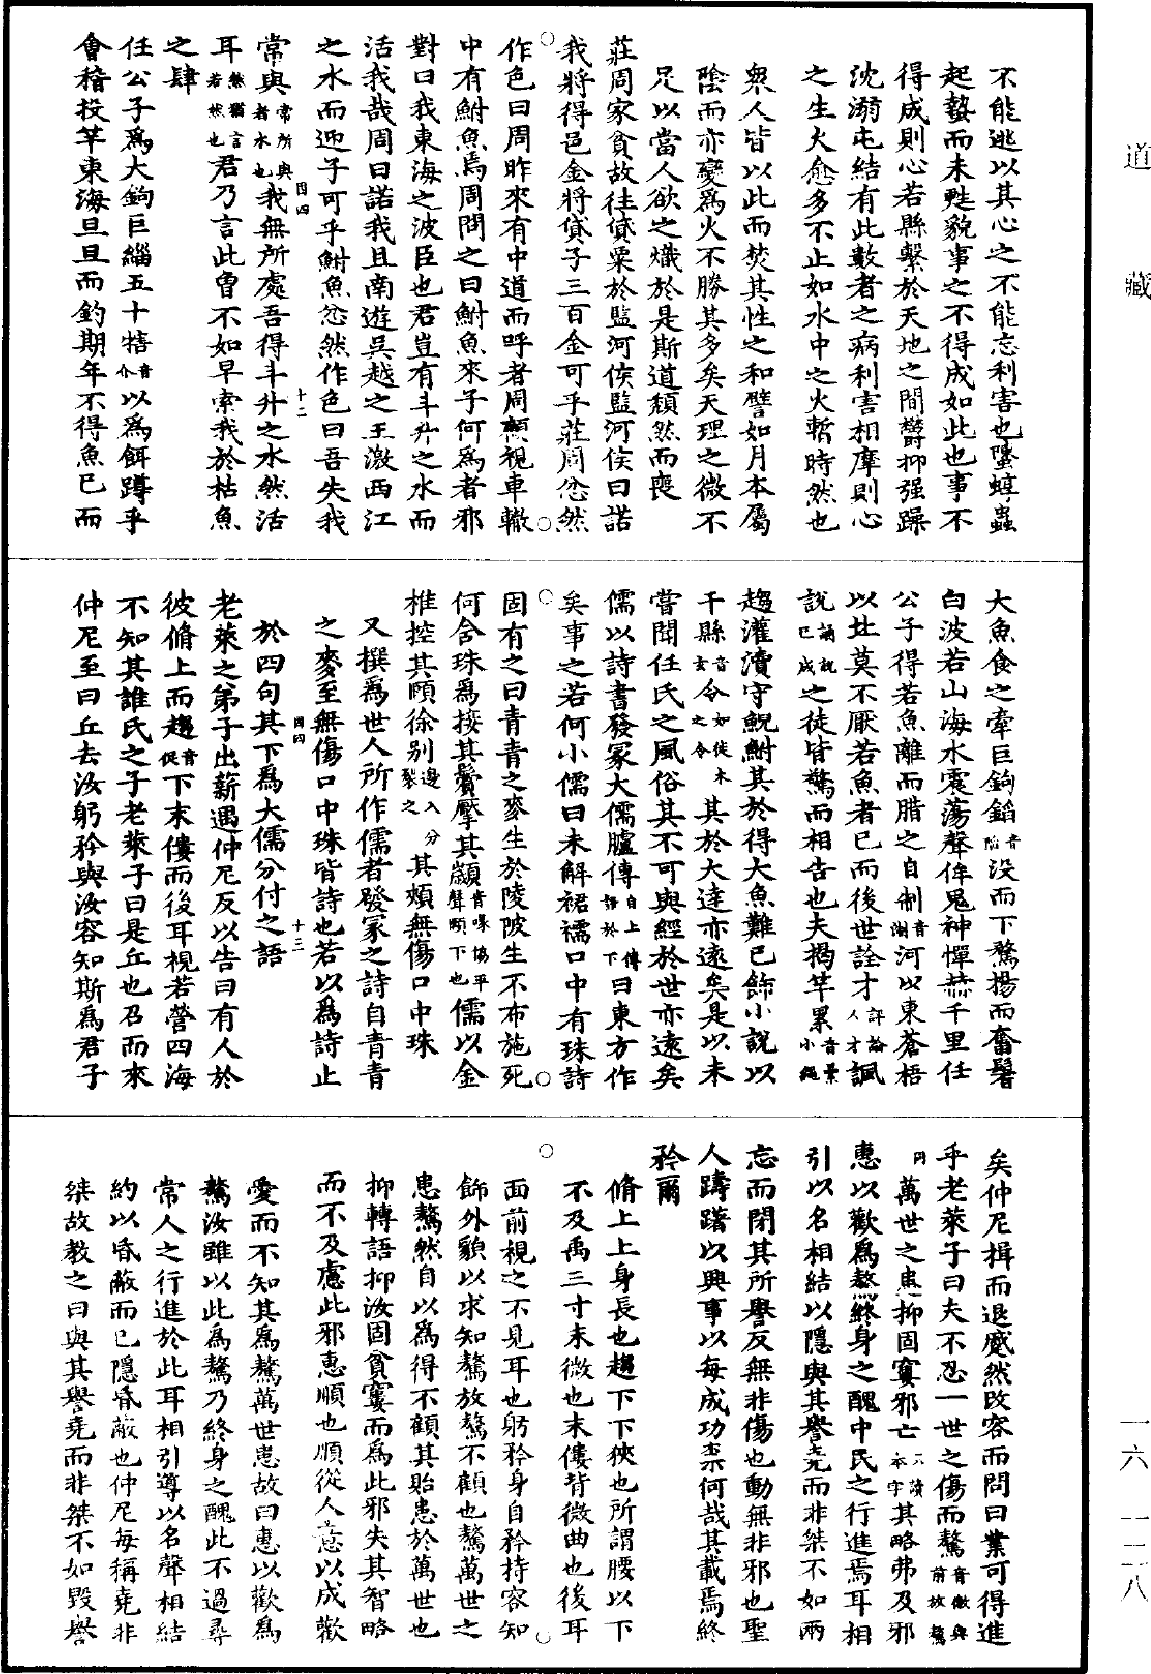 不能逃以其心之不能忘利害也䘆蜳蟲
起蟄而未甦貌事之不得成如此也事不
得成則心若縣繫於天地之間欝抑强躁
沈溺屯結有此數者之病利害相摩則心
之生火愈多不止如水中之火暫時然也
衆人皆以此而焚其性之和譬如月本屬
陰而亦變爲火不勝其多矣天理之微不
足以當人欲之熾於是斯道頹然而喪
莊周家貧故往貸粟於監河侯監河侯曰諾
我將得邑金將貸子三百金可乎莊周忿然
作色曰周昨來有中道而呼者周顧視車轍
中有鮒魚焉周問之曰鮒魚來子何爲者邪
對曰我東海之波臣也君豈有斗升之水而
活我哉周曰諾我且南遊吳越之王激西江
之水而迎子可乎鮒魚忿然作色曰吾失我
常與常所與者水也我無所處吾得斗升之水然活
耳然猶言若然也君乃言此曾不如早索我於枯魚
之肆
任公子爲大鉤巨緇五十犗音介以爲餌蹲乎
會稽投竿東海旦旦而釣期年不得魚已而
大魚食之牽巨鉤錎音陷沒而下騖揚而奮鬐
白波若山海水震蕩聲侔鬼神憚赫千里任
公子得若魚離而腊之自制音浙河以東蒼梧
以北莫不厭若魚者已而後世詮才評論人才諷
說誦說已成之徒皆驚而相告也夫揭竿累音纍小繩
趨灌瀆守鯢鮒其於得大魚難已飾小說以
干縣音玄令如徙木之令其於大達亦遠矣是以未
嘗聞任氏之風俗其不可與經於世亦遠矣
儒以詩書發冢大儒臚傳自上傳語於下曰東方作
矣事之若何小儒曰未解裙襦口中有珠詩
固有之曰青青之麥生於陵陂生不布施死
何含珠爲接其鬢擪其顪音喙協平聲頤下也儒以金
椎控其頤徐別邊入分裂之其頰無傷口中珠
又撰爲世人所作儒者發冢之詩自青青
之麥至無傷口中珠皆詩也若以爲詩止
於四句其下爲大儒分付之語
老萊之弟子出薪遇仲尼反以告曰有人於
彼脩上而趨音促下末僂而後耳視若營四海
不知其誰氏之子老萊子曰是丘也召而來
仲尼至曰丘去汝躬矜與汝容知斯爲君子
矣仲尼揖而退蹙然改容而問曰業可得進
乎老萊子曰夫不忍一世之傷而驁音傲與前放驁
同萬世之患抑固窶邪亡不讀本字其略弗及邪
惠以歡爲驁終身之醜中民之行進焉耳相
引以名相結以隱與其譽堯而非桀不如兩
忘而閉其所譽反無非傷也動無非邪也聖
人躊躇以興事以每成功柰何哉其載焉終
矜爾
脩上上身長也趨下下狹也所謂腰以下
不及禹三寸末微也末僂背微曲也後耳
面前視之不見耳也躬矜身自矜持容知
飾外貌以求知驁放驁不顧也驁萬世之
患驁然自以爲得不顧其貽患於萬世也
抑轉語抑汝固貧窶而爲此邪失其智略
而不及慮此邪惠順也順從人意以成歡
愛而不知其爲驁萬世患故曰惠以歡爲
驁汝雖以此爲驁乃終身之醜此不過尋
常人之行進於此耳相引導以名聲相結
約以昏蔽而已隱昏蔽也仲尼每稱堯非
桀故教之曰與其譽堯而非桀不如毀譽
道藏
一六—一二八